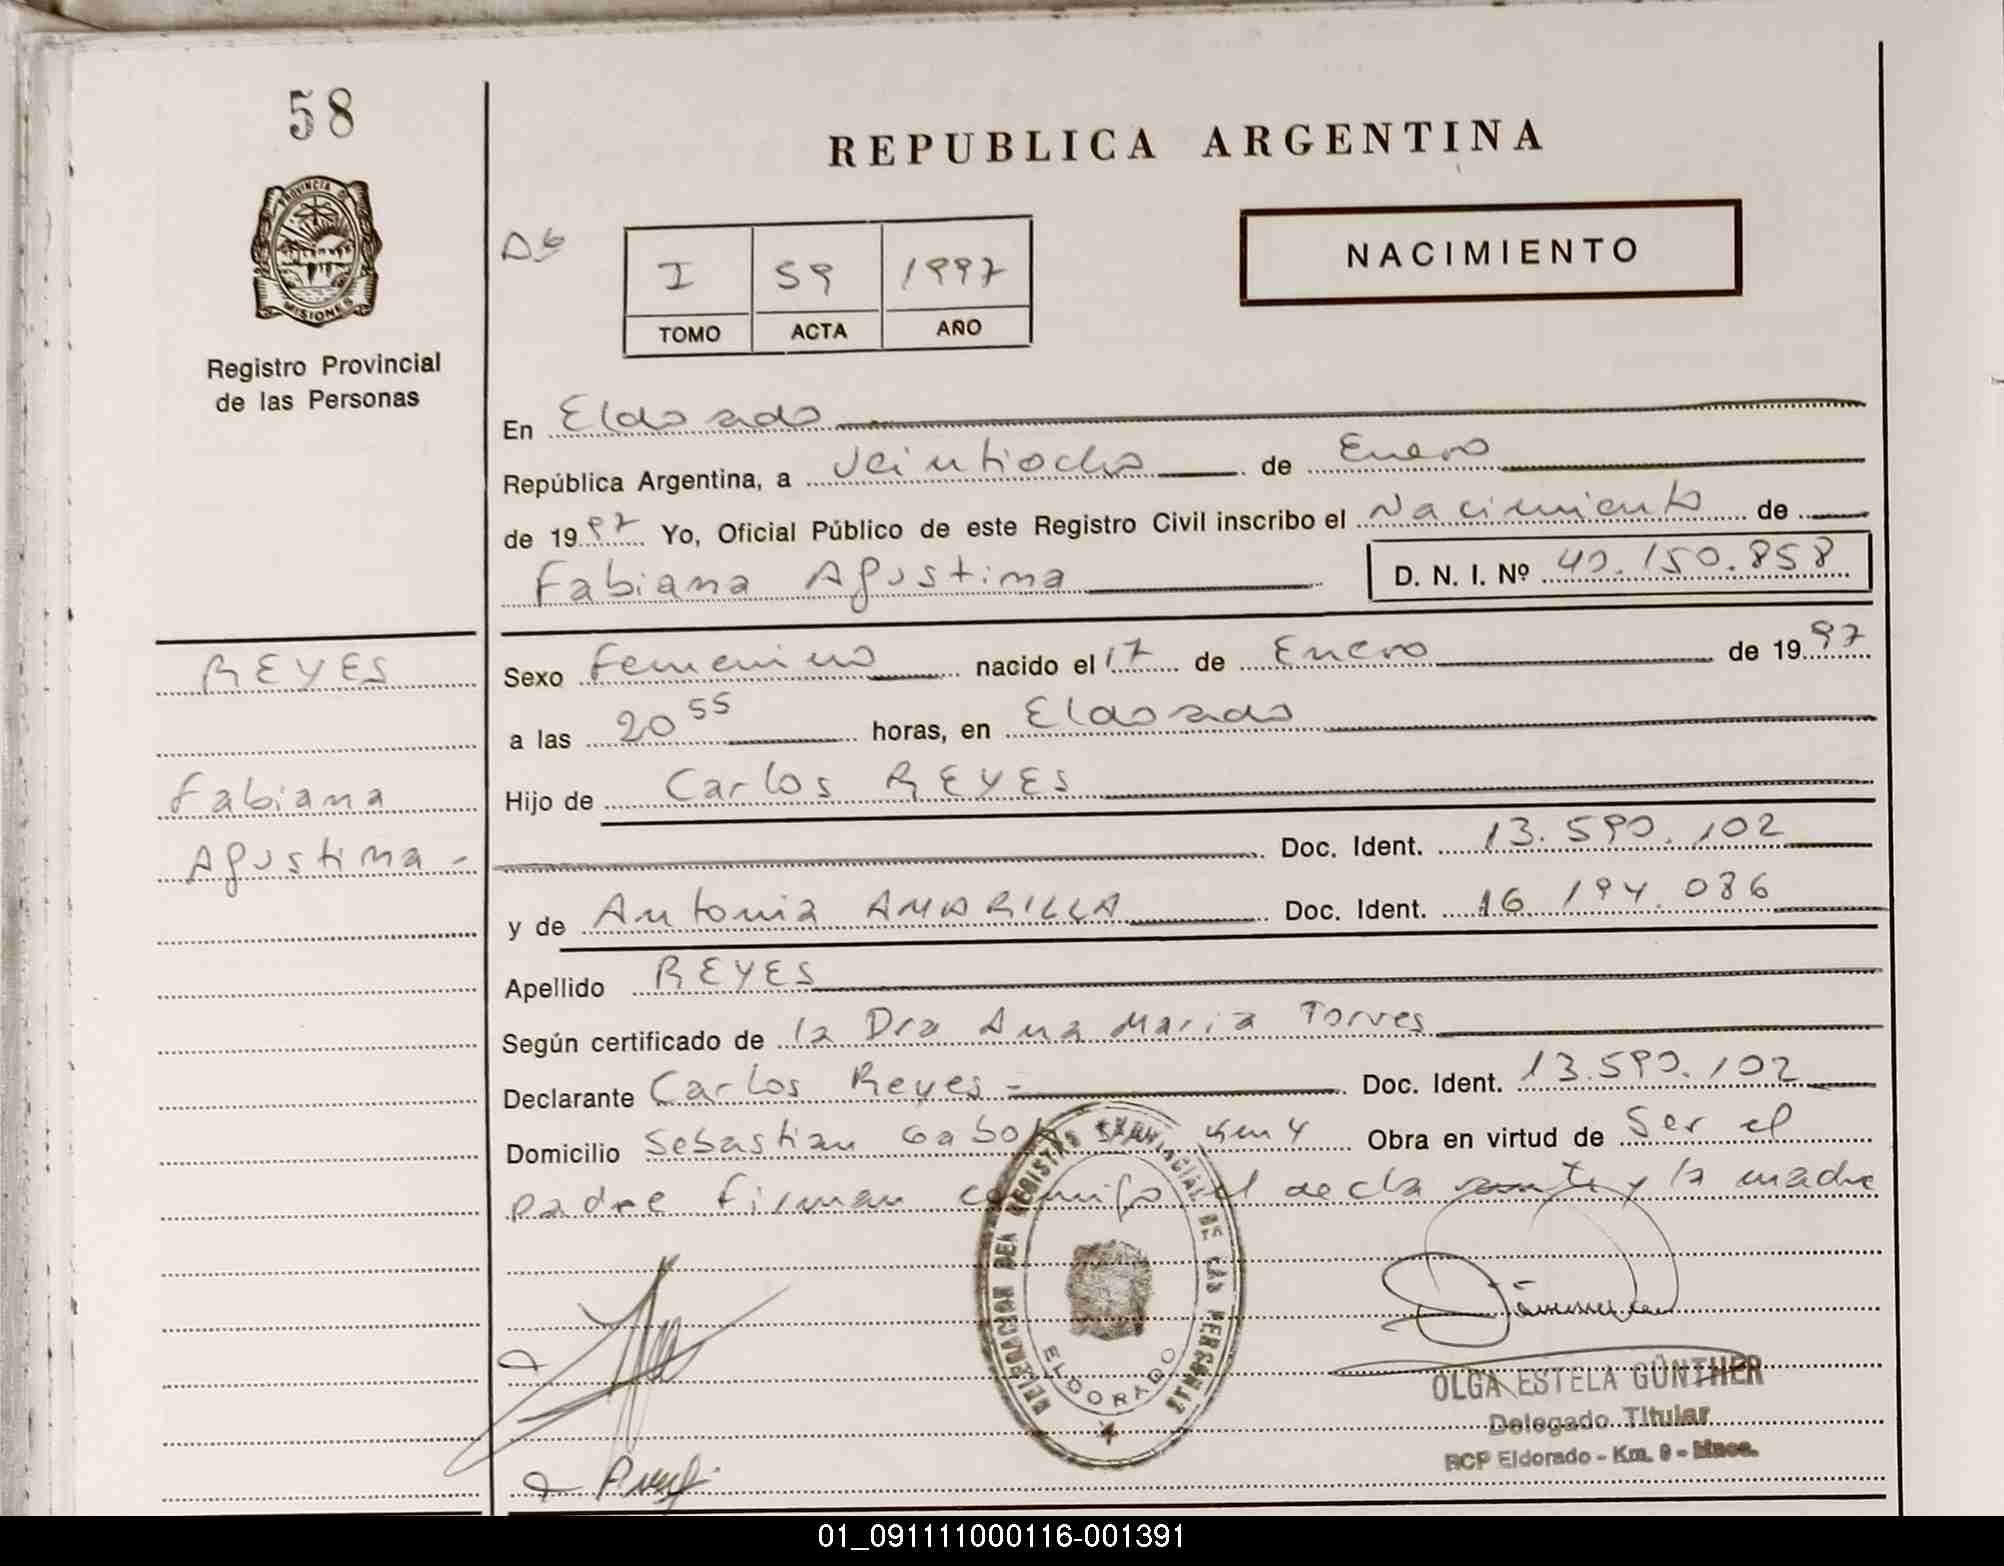 58
REPUBLICA ARGENTINA
PROVINCIA D
MISIONES
Registro Provincial
de las Personas
I 59 1997
TOMO ACTA AÑO
NACIMIENTO
En Eldorado
República Argentina, a veintiocho de Enero
de 1997 Yo, Oficial Público de este Registro Civil inscribo el Nacimiento de
Fabiana Agustina D. N. I. Nº 40.150.858
REYES
Fabiana
Agustina -
Sexo femenino nacido el 17 de Enero de 1997
a las 20 55 horas, en Eldorado
Hijo de Carlos REYES
Doc. Ident. 13.590.102
y de Antonia AMARILLA Doc. Ident. 16 194.086
Apellido REYES
Según certificado de la Dra Ana Maria Torres
Declarante Carlos Reyes - Doc. Ident. 13.590.102
Domicilio Sebastian Gabot Km 4 Obra en virtud de Ser el
padre firman conmigo el declarante y la madre
DELEGACION DEL REGISTRO PROVINCIAL DE LAS PERSONAS
ELDORADO
OLGA ESTELA GÜNTHER
Delegado Titular
RCP Eldorado - Km. 9 - Mnes.
01_091111000116-001391